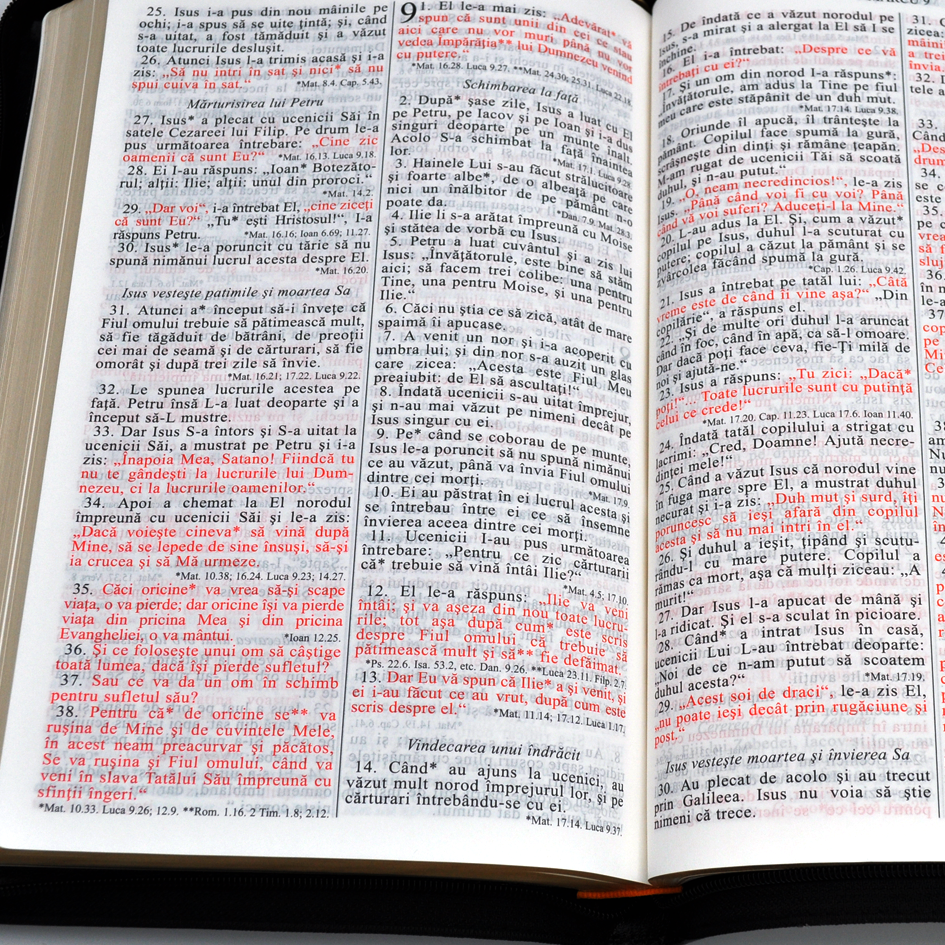 25. Isus i-a pus din nou mâinile pe
ochi; i-a spus să se uite ţintă; şi, când
s-a uitat, a fost tămăduit şi a văzut
toate lucrurile desluşit.
26. Atunci Isus l-a trimis acasă şi i-a
zis: „Să nu intri în sat şi nici* să nu
spui cuiva în sat.“ *Mat. 8.4. Cap. 5.43.
Mărturisirea lui Petru
27. Isus* a plecat cu ucenicii Săi în
satele Cezareei lui Filip. Pe drum le-a
pus următoarea întrebare: „Cine zic
oamenii că sunt Eu?“ *Mat. 16.13. Luca 9.18.
28. Ei I-au răspuns: „Ioan* Botezăto-
rul; alţii: Ilie; alţii: unul din proroci.“
*Mat. 14.2.
29. „Dar voi“, i-a întrebat El, „cine ziceţi
că sunt Eu?“ „Tu* eşti Hristosul!“, I-a
răspuns Petru. *Mat. 16.16; Ioan 6.69; 11.27.
30. Isus* le-a poruncit cu tărie să nu
spună nimănui lucrul acesta despre El.
*Mat. 16.20.
Isus vesteşte patimile şi moartea Sa
31. Atunci a* început să-i înveţe că
Fiul omului trebuie să pătimească mult,
să fie tăgăduit de bătrâni, de preoţii
cei mai de seamă şi de cărturari, să fie
omorât şi după trei zile să învie.
*Mat. 16.21; 17.22. Luca 9.22.
32. Le spunea lucrurile acestea pe
faţă. Petru însă L-a luat deoparte şi a
început să-L mustre.
33. Dar Isus S-a întors şi S-a uitat la
ucenicii Săi, a mustrat pe Petru şi i-a
zis: „Înapoia Mea, Satano! Fiindcă tu
nu te gândeşti la lucrurile lui Dum-
nezeu, ci la lucrurile oamenilor.“
34. Apoi a chemat la El norodul
împreună cu ucenicii Săi şi le-a zis:
„Dacă voieşte cineva* să vină după
Mine, să se lepede de sine însuşi, să-şi
ia crucea şi să Mă urmeze.
*Mat. 10.38; 16.24. Luca 9.23; 14.27.
35. Căci oricine* va vrea să-şi scape
viaţa, o va pierde; dar oricine îşi va pierde
viaţa din pricina Mea şi din pricina
Evangheliei, o va mântui. *Ioan 12.25.
36. Şi ce foloseşte unui om să câştige
toată lumea, dacă îşi pierde sufletul?
37. Sau ce va da un om în schimb
pentru sufletul său?
38. Pentru că* de oricine se** va
ruşina de Mine şi de cuvintele Mele,
în acest neam preacurvar şi păcătos,
Se va ruşina şi Fiul omului, când va
veni în slava Tatălui Său împreună cu
sfinţii îngeri.“
*Mat. 10.33. Luca 9.26; 12.9. **Rom. 1.16. 2 Tim. 1.8; 2.12.
9 1. El le-a mai zis: „Adevărat* vă
spun că sunt unii din cei ce stau
aici care nu vor muri, până nu vor
vedea Împărăţia** lui Dumnezeu venind
cu putere.“
*Mat. 16.28. Luca 9.27. **Mat. 24.30; 25.31. Luca 22.18.
Schimbarea la faţă
2. După* şase zile, Isus a luat cu El
pe Petru, pe Iacov şi pe Ioan şi i-a dus
singuri deoparte pe un munte înalt.
Acolo S-a schimbat la faţă înaintea
lor. *Mat. 17.1. Luca 9.28.
3. Hainele Lui s-au făcut strălucitoare
şi foarte albe*, de o albeaţă pe care
nici un înălbitor de pe pământ n-o
poate da. *Dan. 7.9. Mat. 28.3.
4. Ilie li s-a arătat împreună cu Moise
şi stătea de vorbă cu Isus.
5. Petru a luat cuvântul şi a zis lui
Isus: „Învăţătorule, este bine să stăm
aici; să facem trei colibe: una pentru
Tine, una pentru Moise, şi una pentru
Ilie.“
6. Căci nu ştia ce să zică, atât de mare
spaimă îi apucase.
7. A venit un nor şi i-a acoperit cu
umbra lui; şi din nor s-a auzit un glas
care zicea: „Acesta este Fiul Meu
preaiubit: de El să ascultaţi!“
8. Îndată ucenicii s-au uitat împrejur,
şi n-au mai văzut pe nimeni decât pe
Isus singur cu ei.
9. Pe* când se coborau de pe munte,
Isus le-a poruncit să nu spună nimănui
ce au văzut, până va învia Fiul omului
dintre cei morţi. *Mat. 17.9.
10. Ei au păstrat în ei lucrul acesta şi
se întrebau între ei ce să însemne
învierea aceea dintre cei morţi.
11. Ucenicii I-au pus următoarea
întrebare: „Pentru ce zic cărturarii
că* trebuie să vină întâi Ilie?“
*Mat. 4.5; 17.10.
12. El le-a răspuns: „Ilie va veni
întâi; şi va aşeza din nou toate lucru-
rile; tot aşa după cum* este scris
despre Fiul omului că trebuie să
pătimească mult şi să** fie defăimat.
*Ps. 22.6. Isa. 53.2, etc. Dan. 9.26. **Luca 23.11. Filip. 2.7.
13. Dar Eu vă spun că Ilie* a şi venit, şi
ei i-au făcut ce au vrut, după cum este
scris despre el.“ *Mat. 11.14; 17.12. Luca 1.17.
Vindecarea unui îndrăcit
14. Când* au ajuns la ucenici, au
văzut mult norod împrejurul lor, şi pe
cărturari întrebându-se cu ei.
*Mat. 17.14. Luca 9.37.
15. De îndată ce a văzut norodul pe
Isus, s-a mirat şi a alergat la El să I se
16. El i-a întrebat: „Despre ce vă
întrebaţi cu ei?“
17. Şi un om din norod I-a răspuns*:
„Învăţătorule, am adus la Tine pe fiul
meu care este stăpânit de un duh mut.
*Mat. 17.14. Luca 9.38.
18. Oriunde îl apucă, îl trânteşte la
pământ. Copilul face spumă la gură,
scrâşneşte din dinţi şi rămâne ţeapăn.
M-am rugat de ucenicii Tăi să scoată
duhul, şi n-au putut.“
19. „O, neam necredincios!“, le-a zis
Isus. „Până când voi fi cu voi? Până
când vă voi suferi? Aduceţi-l la Mine.“
20. L-au adus la El. Şi, cum a văzut*
copilul pe Isus, duhul l-a scuturat cu
putere; copilul a căzut la pământ şi se
zvârcolea făcând spumă la gură.
*Cap. 1.26. Luca 9.42.
21. Isus a întrebat pe tatăl lui: „Câtă
vreme este de când îi vine aşa?“ „Din
copilărie“, a răspuns el.
22. „Şi de multe ori duhul l-a aruncat
când în foc, când în apă, ca să-l omoare.
Dar dacă poţi face ceva, fie-Ţi milă de
noi şi ajută-ne.“
23. Isus a răspuns: „Tu zici: „Dacă*
poţi!“... Toate lucrurile sunt cu putinţă
celui ce crede!“
*Mat. 17.20. Cap. 11.23. Luca 17.6. Ioan 11.40.
24. Îndată tatăl copilului a strigat cu
lacrimi: „Cred, Doamne! Ajută necre-
dinţei mele!“
25. Când a văzut Isus că norodul vine
în fuga mare spre El, a mustrat duhul
necurat şi i-a zis: „Duh mut şi surd, îţi
poruncesc să ieşi afară din copilul
acesta şi să nu mai intri în el.“
26. Şi duhul a ieşit, ţipând şi scutu-
rându-l cu mare putere. Copilul a
rămas ca mort, aşa că mulţi ziceau: „A
murit!“
27. Dar Isus l-a apucat de mână şi
l-a ridicat. Şi el s-a sculat în picioare.
28. Când* a intrat Isus în casă,
ucenicii Lui L-au întrebat deoparte:
„Noi de ce n-am putut să scoatem
duhul acesta?“ *Mat. 17.19.
29. „Acest soi de draci“, le-a zis El,
„nu poate ieşi decât prin rugăciune şi
post.“
Isus vesteşte moartea şi învierea Sa
30. Au plecat de acolo şi au trecut
prin Galileea. Isus nu voia să ştie
nimeni că trece.